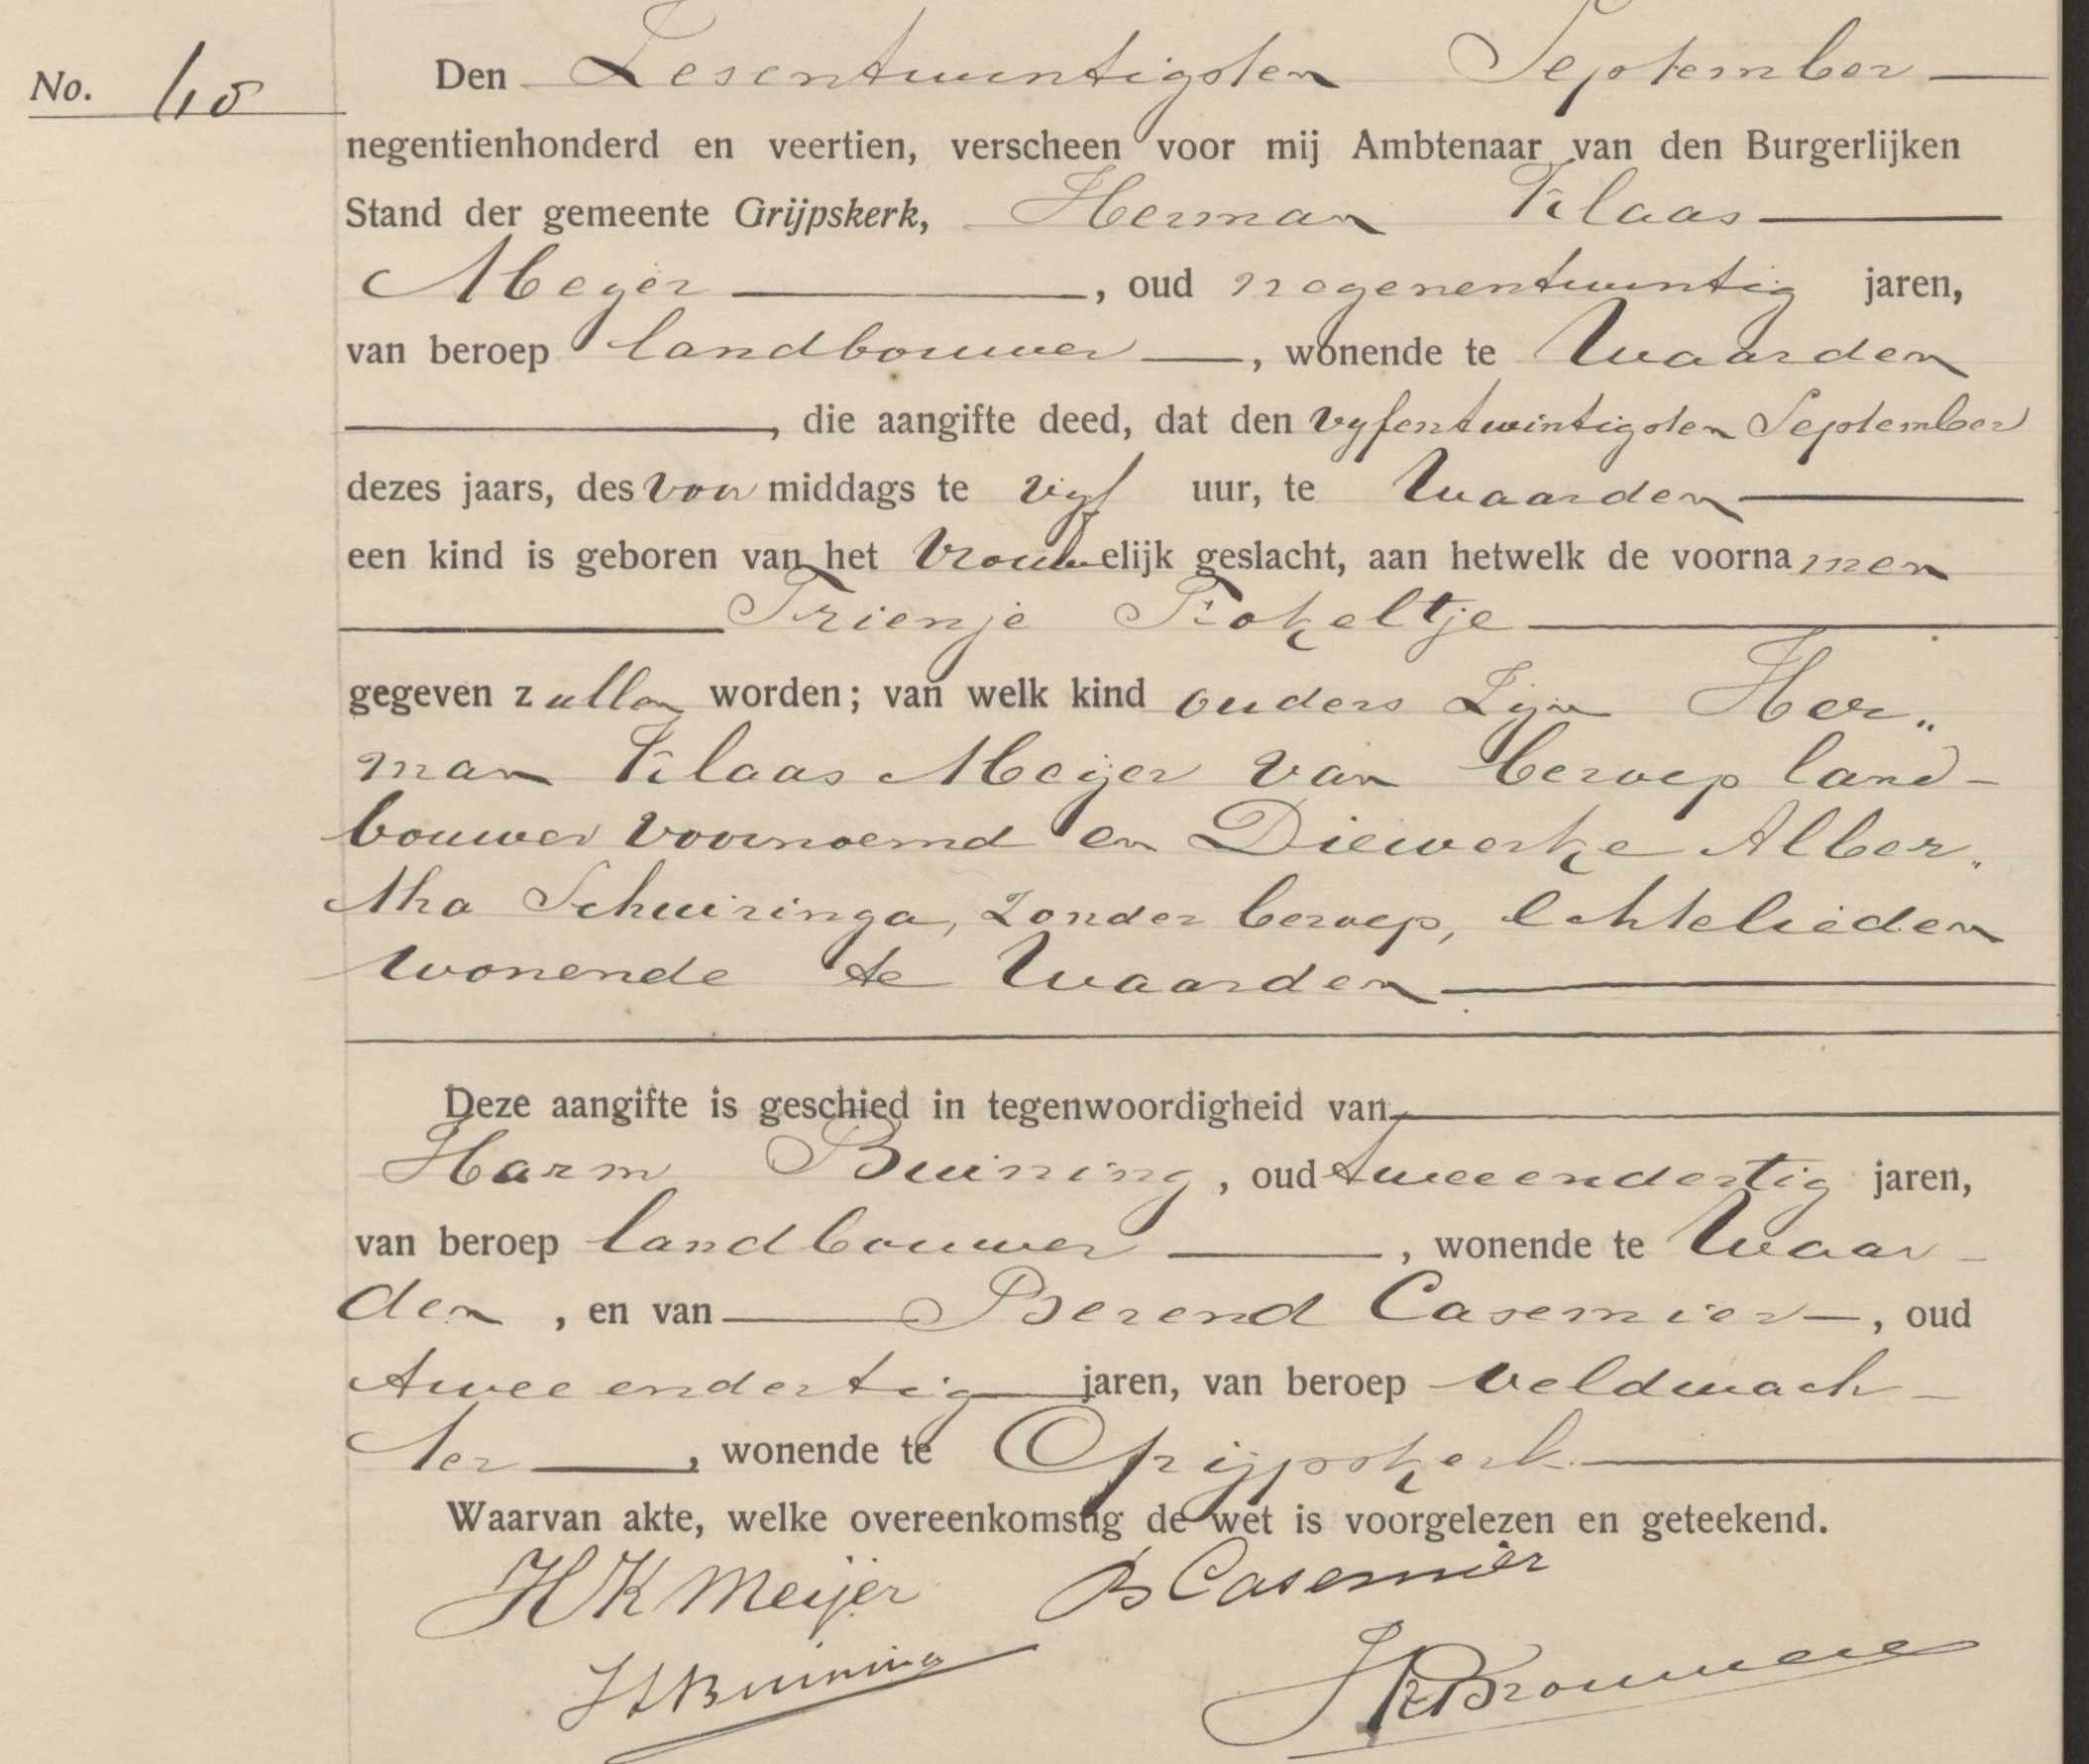 No. 40
Den Zesentwintigsten September
negentienhonderd en veertien, verscheen voor mij Ambtenaar van den Burgerlijken
Stand der gemeente Grijpskerk, Herman Klaas
Meijer, oud negenentwintig jaren,
van beroep landbouwer, wonende te Waarden
, die aangifte deed, dat den vijfentwintigsten September
dezes jaars, des voor middags te vijf uur, te Waarden
een kind is geboren van het Vrouwelijk geslacht, aan hetwelk de voornamen
Trienje Fokeltje
gegeven zullen worden; van welk kind ouders zijn Her„
man Klaas Meijer van beroep land-
bouwer voornoemd en Diewerke Alber„
tha Schuiringa, zonder beroep, Echtelieden
wonende te Waarden
Deze aangifte is geschied in tegenwoordigheid van
Harm Buining, oud tweeendertig jaren,
van beroep landbouwer, wonende te Waar-
den, en van Berend Casemier, oud
tweeendertig jaren, van beroep veldwach-
ter, wonende te Grijpskerk
Waarvan akte, welke overeenkomstig de wet is voorgelezen en geteekend.
HK Meijer B Casemier
H Buining